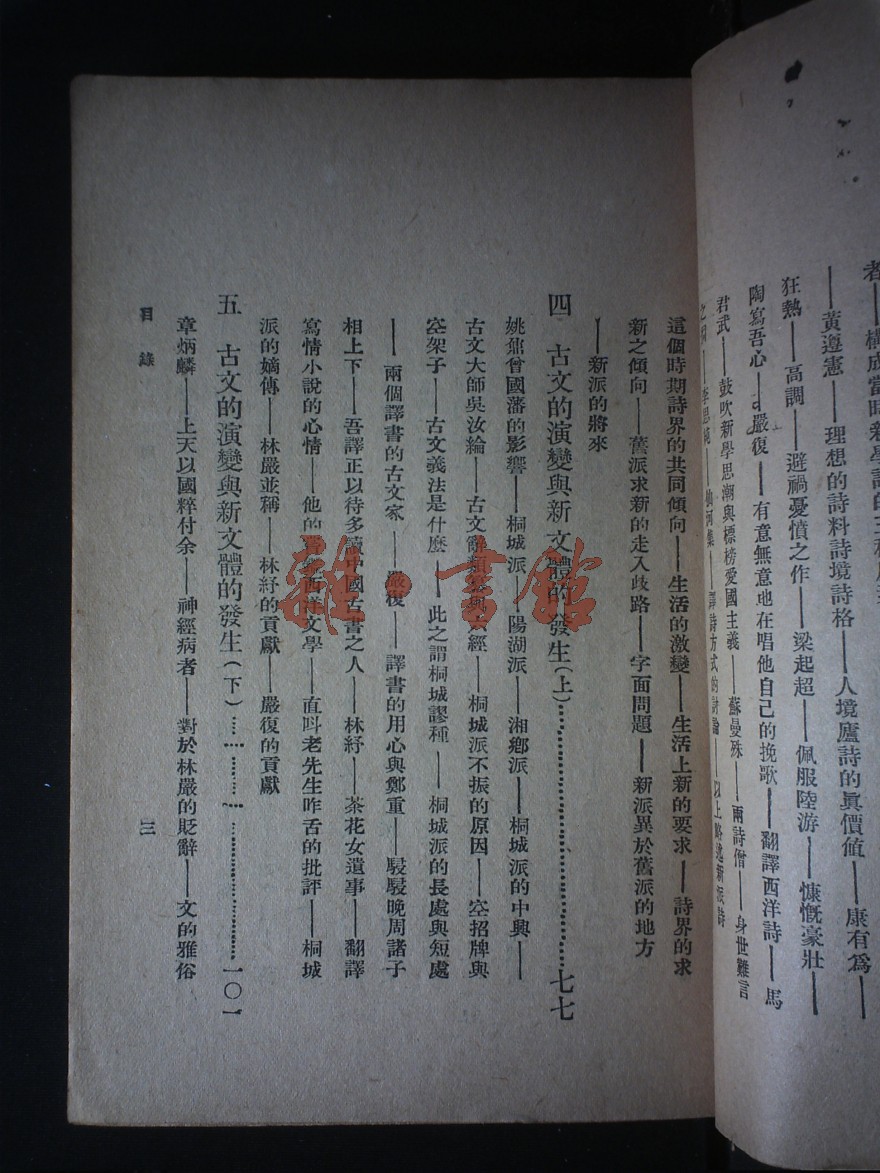 黃遵憲——理想的詩料詩境詩格——人境廬詩的眞價値——康有爲——
狂熱——高調——避禍憂憤之作——梁起超——佩服陸游——慷慨豪壯——
陶寫吾心——嚴復——有意無意地在唱他自己的挽歌——翻譯西洋詩——馬
君武——鼓吹新學思潮與標榜愛國主義——蘇曼殊——兩詩僧——身世難言
這個時期詩界的共同傾向——生活的激變——生活上新的要求——詩界的求
新之傾向——舊派求新的走入歧路——字面問題——新派異於舊派的地方
——新派的將來
四 古文的演變與新文體的發生(上)……七七
姚鼐曾國藩的影響——桐城派——陽湖派——湘鄕派——桐城派的中興——
古文大師吳汝綸——古文辭類纂與六經——桐城派不振的原因——空招牌與
空架子——古文義法是什麼——此之謂桐城謬種——桐城派的長處與短處
——兩個譯書的古文家——嚴復——譯書的用心與鄭重——駸駸晚周諸子
相上下——吾譯正以待多讀中國古書之人——林紓——茶花女遺事——翻譯
寫情小說的心情——他的西洋文學——直呌老先生咋舌的批評——桐城
派的嫡傳——林嚴並稱——林紓的貢獻——嚴復的貢獻
五 古文的演變與新文體的發生(下)……一〇一
章炳麟——上天以國粹付余——神經病者——對於林嚴的貶辭——文的雅俗
目錄 三
雜·書館